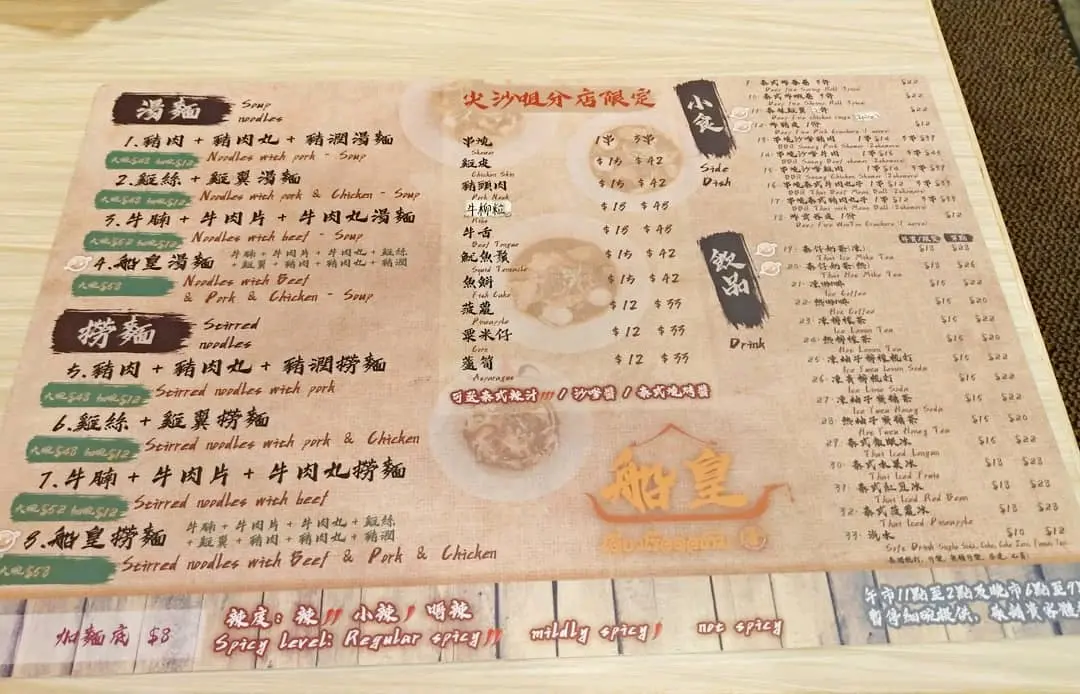 湯麵 Soup noodles
1.豬肉 + 豬肉丸 + 豬潤湯麵
大碗$48 細碗$12 Noodles with pork - Soup
2.雞絲 + 雞翼湯麵
大碗$48 細碗$12 Noodles with pork & Chicken - Soup
3.牛腩 + 牛肉片 + 牛肉丸湯麵
大碗$52 細碗$12 Noodles with beef - Soup
4.船皇湯麵 牛腩 + 牛肉片 + 牛肉丸 + 雞絲
+ 雞翼 + 豬肉 + 豬肉丸 + 豬潤
大碗$58 Noodles with Beef
& Pork & Chicken - Soup
撈麵 Stirred noodles
5.豬肉 + 豬肉丸 + 豬潤撈麵
大碗$48 細碗$12 Stirred noodles with pork
6.雞絲 + 雞翼撈麵
大碗$48 細碗$12 Stirred noodles with pork & Chicken
7.牛腩 + 牛肉片 + 牛肉丸撈麵
大碗$52 細碗$12 Stirred noodles with beef
8.船皇撈麵 牛腩 + 牛肉片 + 牛肉丸 + 雞絲
+ 雞翼 + 豬肉 + 豬肉丸 + 豬潤
大碗$58 Stirred noodles with Beef & Pork & Chicken
尖沙咀分店限定
串燒 1串 3串
Skewer
雞皮 $15 $42
Chicken Skin
豬頸肉 $15 $42
Pork Neck
牛柳粒 $15 $45
牛舌 $15 $45
Beef Tongue
魷魚鬚 $15 $45
Squid Tentacle
魚餅 $15 $42
Fish Cake
菠蘿 $12 $33
Pineapple
粟米仔 $12 $33
Corn
蘆筍 $12 $33
Asparagus
可蘸泰式辣汁 / 沙嗲醬 / 泰式燒烤醬
船皇
小食
Side Dish
泰式炸春卷
Deep Fire Spring Roll $22
$22
Deep Fire chicken wings
12· 炸豬皮 1份 $12
串燒沙嗲豬肉 1串
18· 炸雲吞皮 1份 $12
飲品
Drink
19· 泰仔奶茶(凍) $18 $23
Thai Ice Milk Tea
20· 泰仔奶茶(熱) $18 $26
Thai Hot Milk Tea
21· 凍咖啡 $15 $22
Ice Coffee
22· 熱咖啡 $15 $20
Hot Coffee
23· 凍檸檬茶 $15 $22
Ice Lemon Tea
24· 熱檸檬茶 $15 $20
Hot Lemon Tea
25· 凍柚子檸檬梳打 $15 $22
Ice Yuzu Lemon Soda
26· 凍青檸梳打 $15 $22
Ice Lime Soda
27· 凍柚子蜜糖茶 $15 $22
Ice Yuzu Honey Soda
28· 熱柚子蜜糖茶 $15 $20
Hot Yuzu Honey Tea
29· 泰式龍眼冰 $15 $22
Thai Iced Longan
30· 泰式水果冰 $18 $23
Thai Iced Fruits
31· 泰式紅豆冰 $18 $23
Thai Iced Red Bean
32· 泰式菠蘿冰 $18 $23
Thai Iced Pineapple
33· 汽水 $10 $12
Soft Drink
加麵底 $8
辣度：辣 小辣 唔辣
Spicy Level: Regular spicy mildly spicy not spicy
午市11點至2點及晚市6點至9
暫停細碗提供，